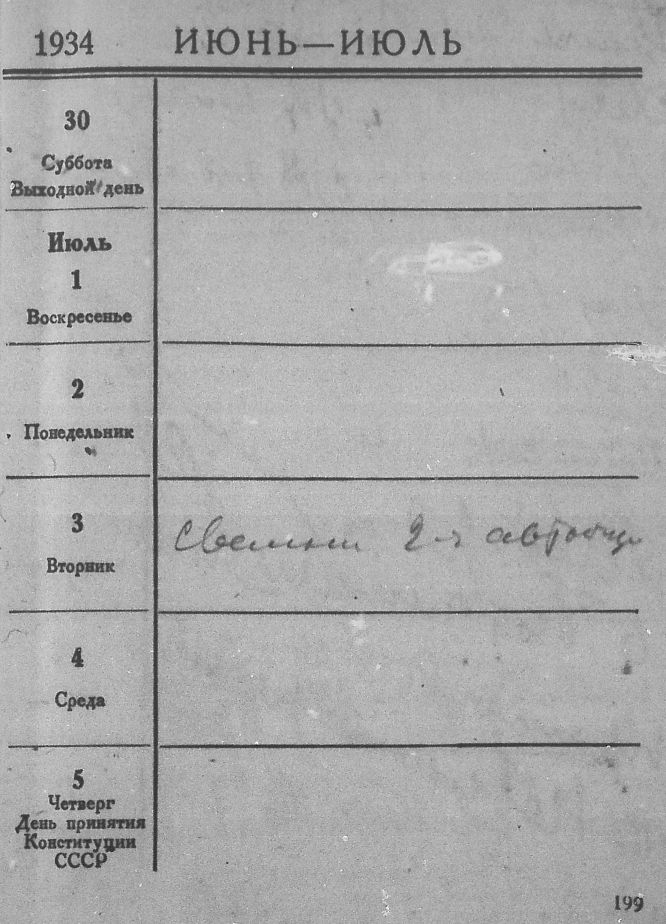 1934 ИЮНЬ—ИЮЛЬ
30
Суббота
Выходной день
Июль
1
Воскресенье
2
Понедельник
3
Вторник
2-я
4
Среда
5
Четверг
День принятия
Конституции
СССР
199